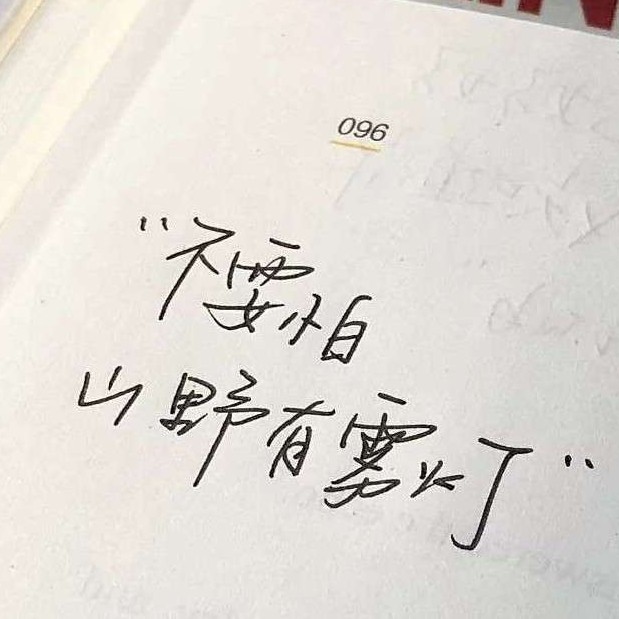 096
"不要怕
山野有雾灯"